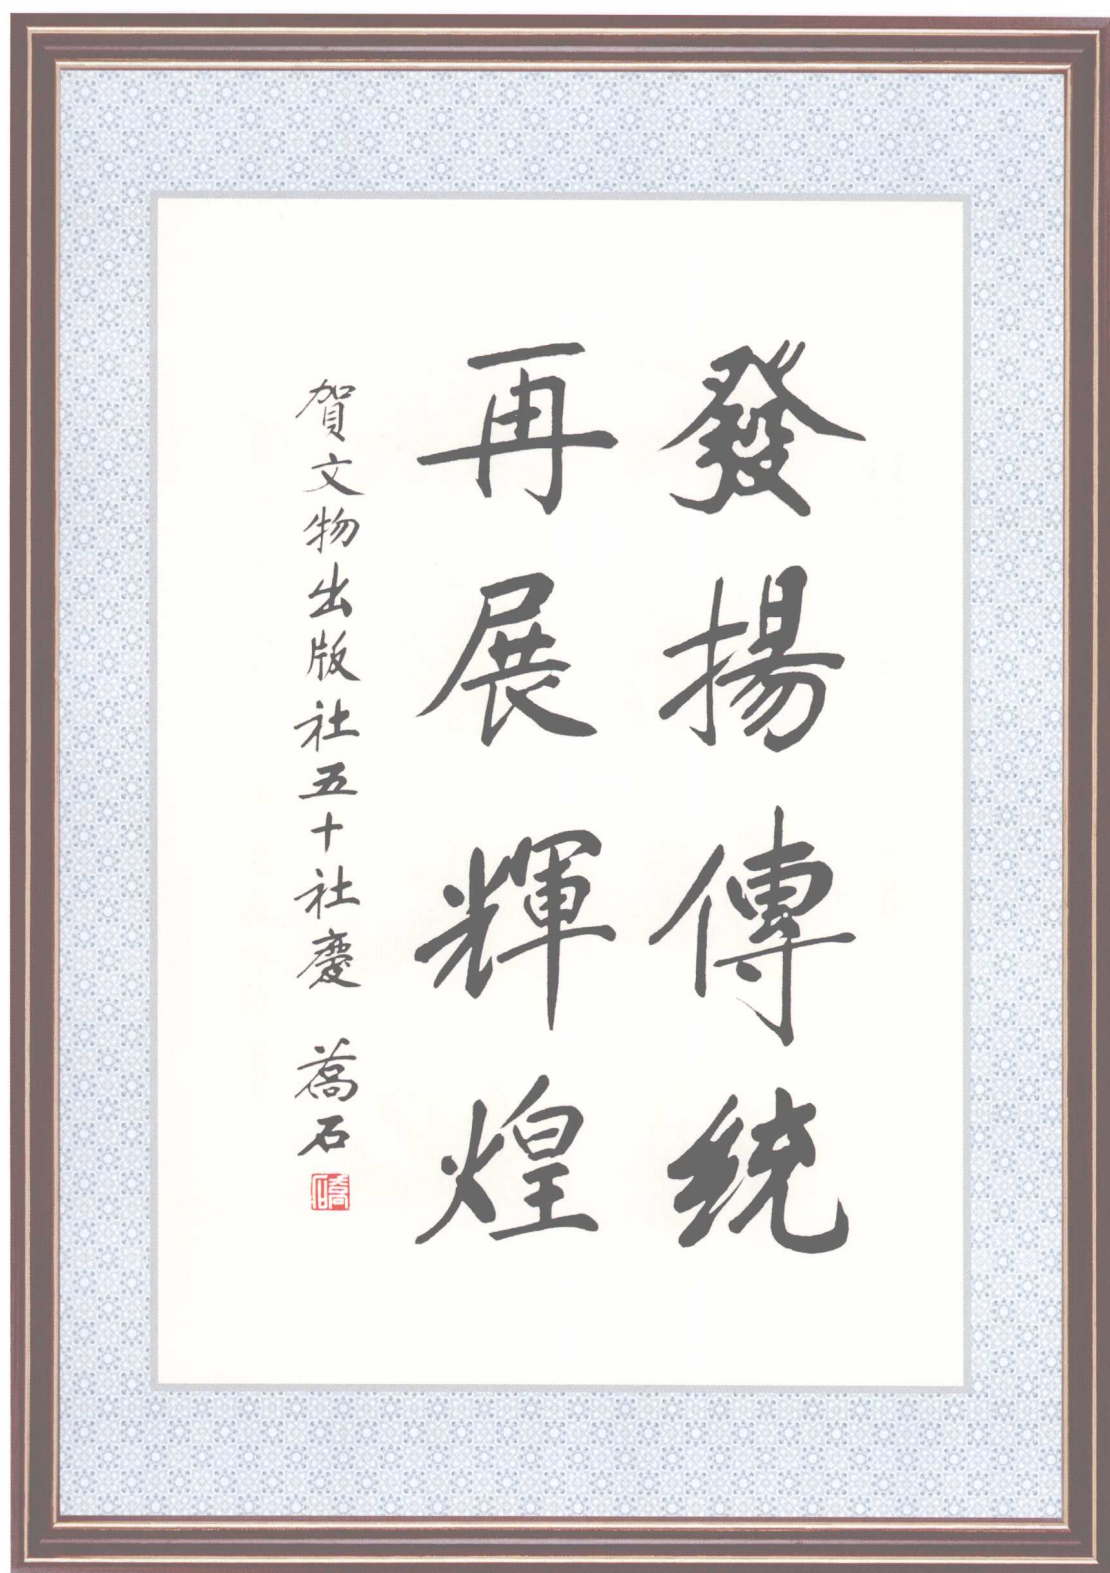 發揚傳統
再展輝煌
賀文物出版社五十社慶 蕎石